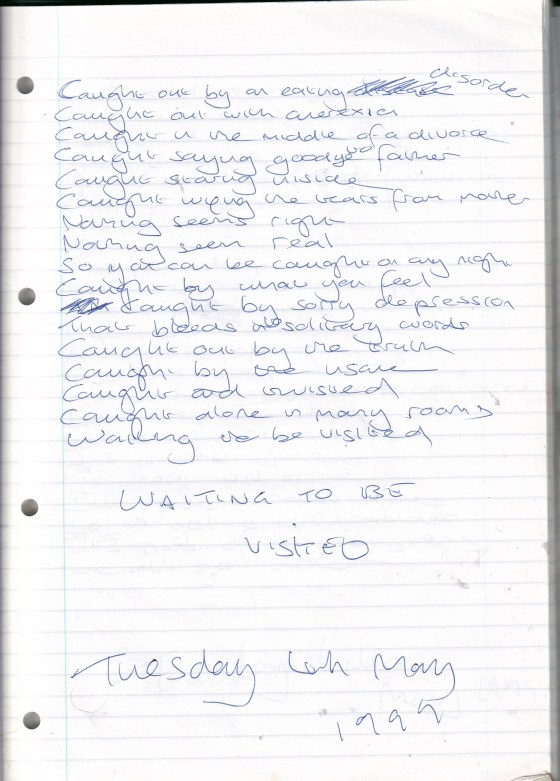 Caught out by an eating disorder
Caught out with anerexia
Caught in the middle of a divorce
Caught saying goodye to father
Caught staring inside
Caught wiping the tears from mother
Nothing seems right
Nothing seem real
So you can be caught on any night
Caught by what you feel
Caught by sorry depression
That bleeds solitary words
Caught out by the truth
Caught by the
Caught and
Caught alone in many rooms
Waiting to be visited
WAITING TO BE
VISITED
Tuesday May
1999